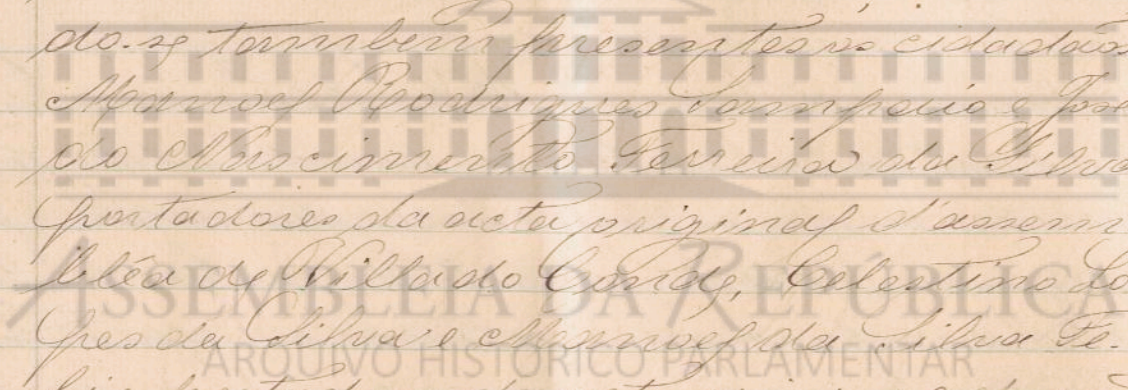 do-se tambem presentes os cidadãos
Manoel Rodrigues Sampaio e José
do Nascimento Ferreira da Silva
portadores da acta original d'assem
bléa de Villa do Conde, Celestino Lo
pes da Silva e Manoel da Silva Fe-
ASSEMBLEIA DA REPÚBLICA
ARQUIVO HISTÓRICO PARLAMENTAR